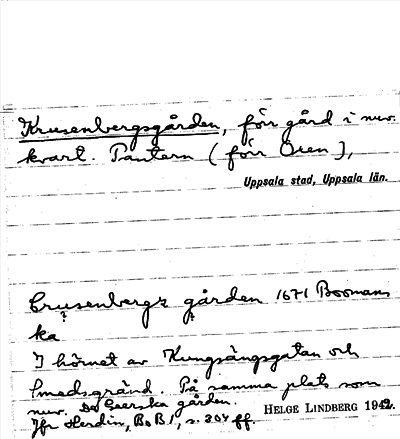 Krusenbergsgården, förr gård i nuv.
kvart. Pantern (förr Oxen),
Uppsala stad, Uppsala län.
Crusenbergz gården 1671 Boomans
ka
? ?
I hörnet av Kungsängsgatan och
Smedsgränd. På samma plats som
nuv. De Geerska gården.
Jfr Herdin, BoB I, s. 204 ff.
HELGE LINDBERG 1942.